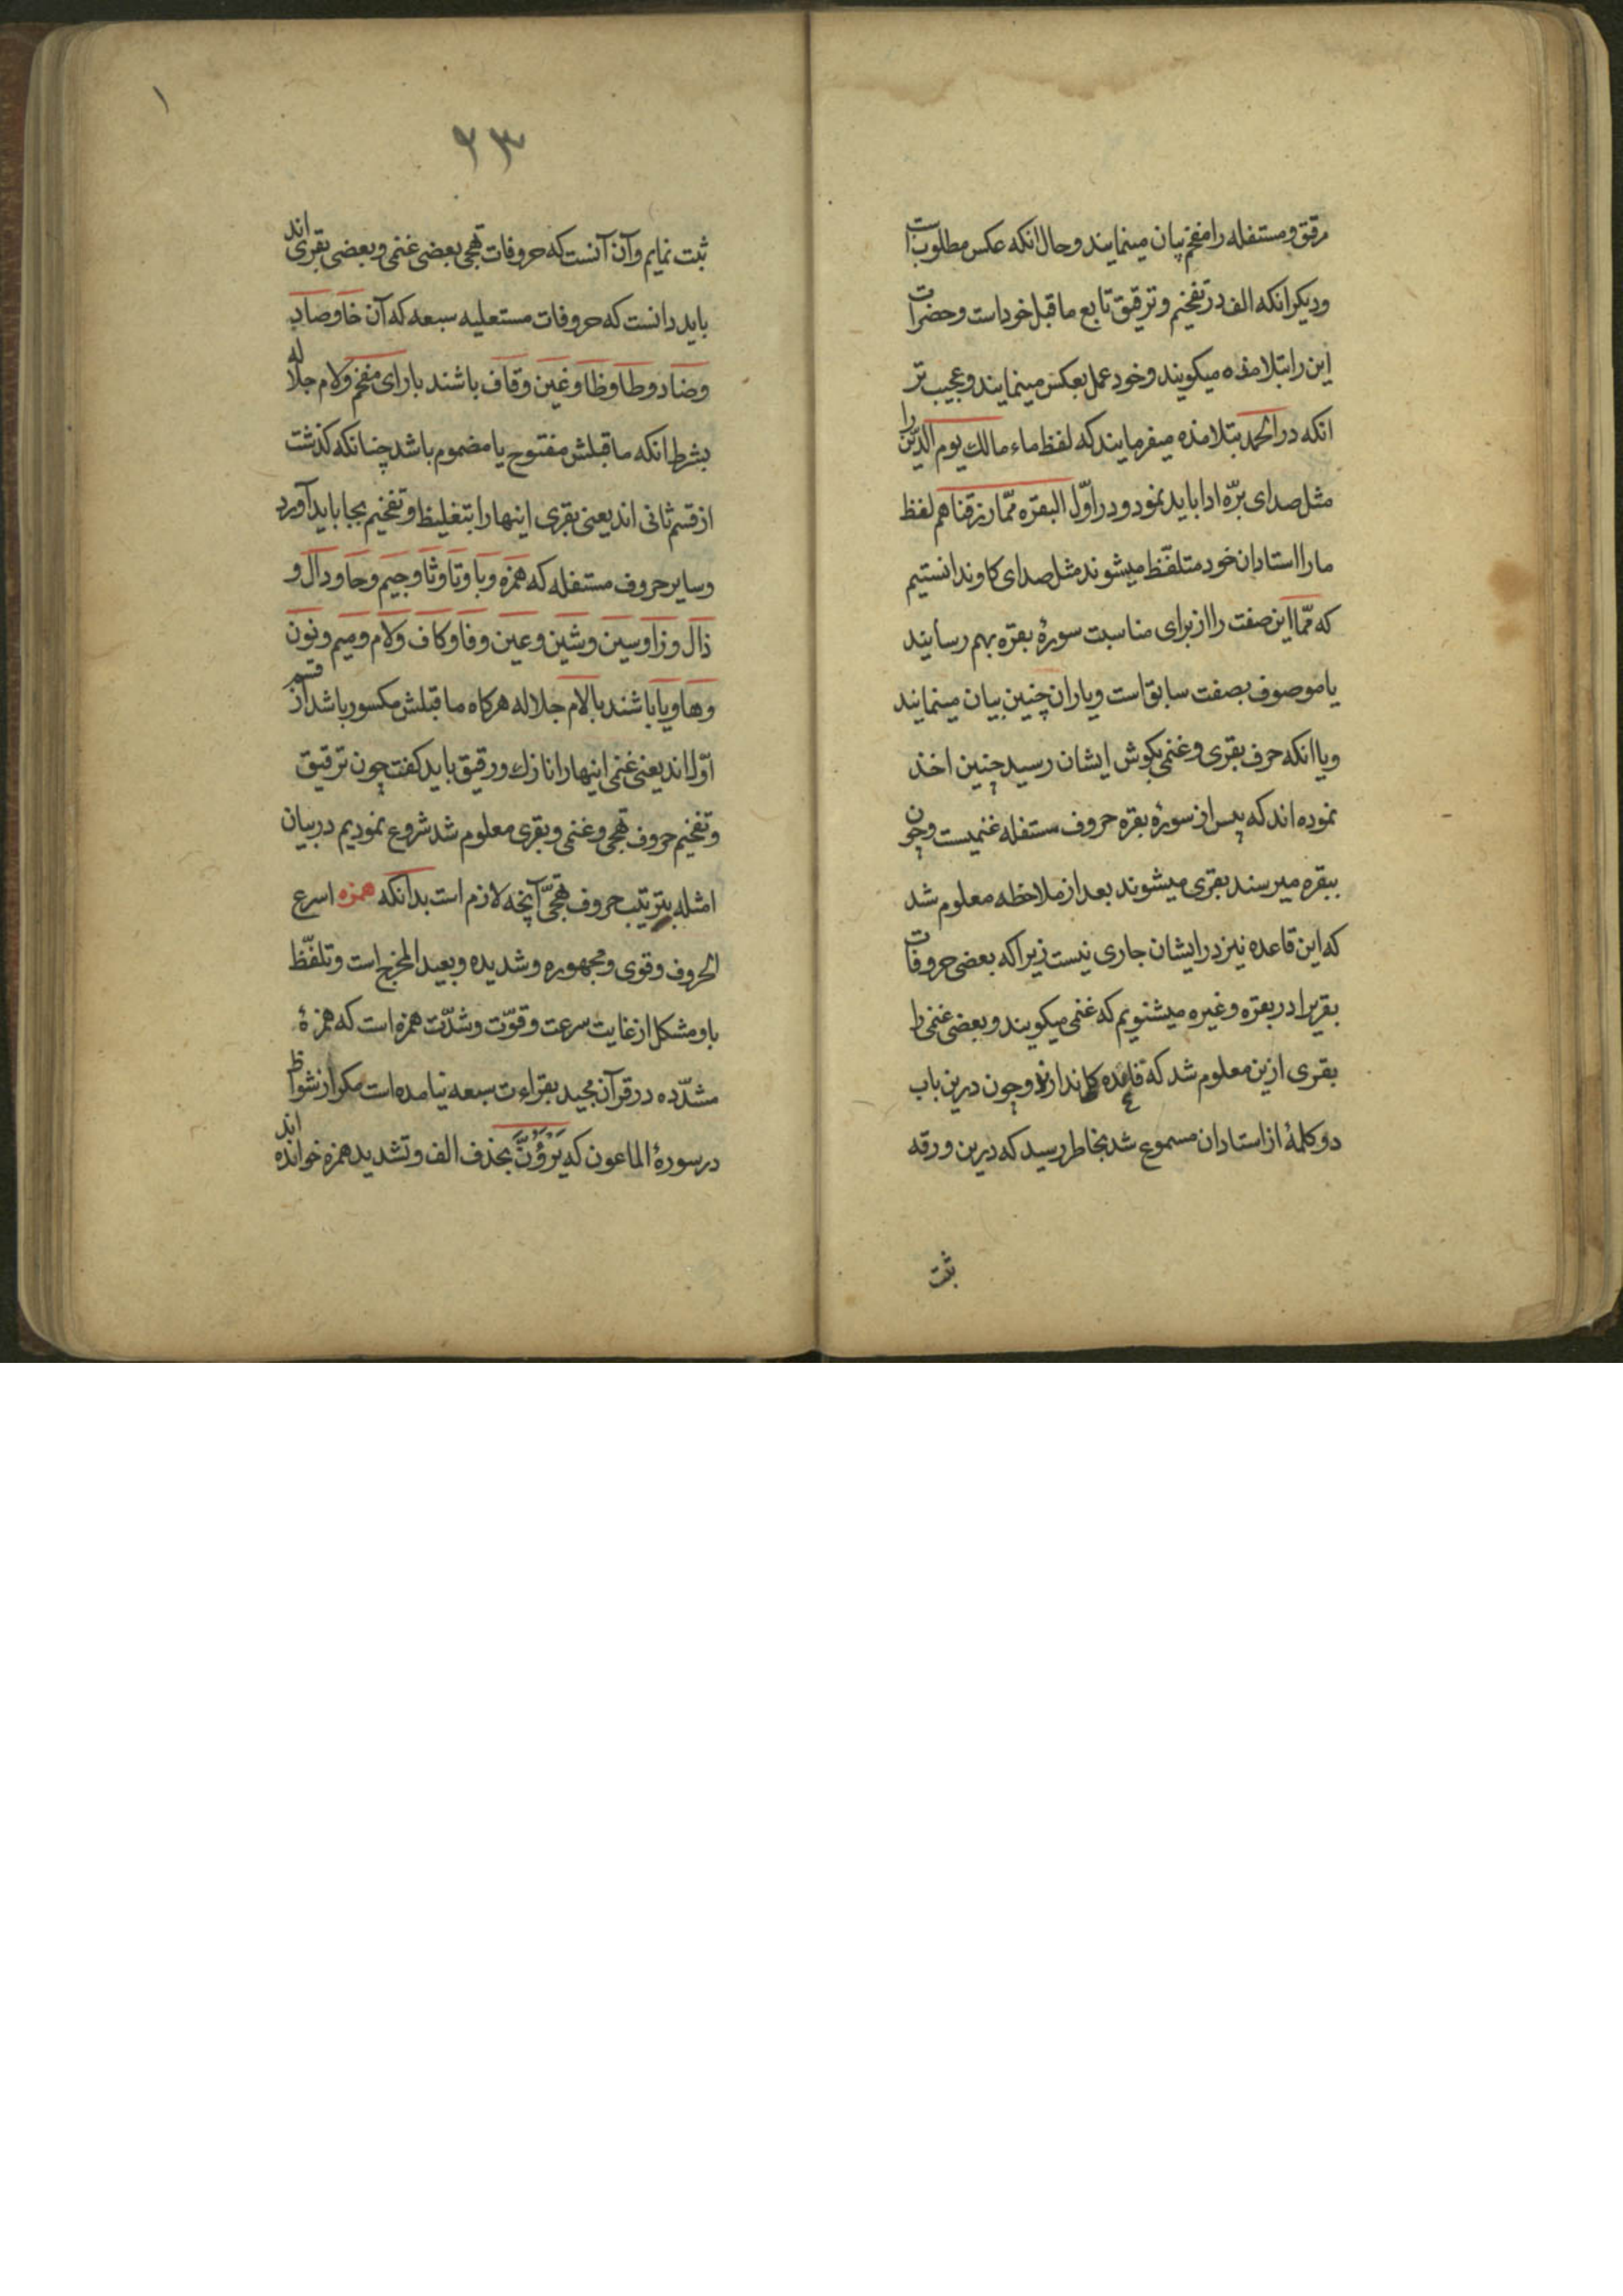 مرقق و مستفله را مفخم بیان مینمایند و حال انکه عکس مطلوب است
و دیکر انکه الف در تفخیم و ترقیق تابع ما قبل خود است و حضرات
این را بتلامذه میکویند و خود عمل بعکس مینمایند و عجیب تر
انکه در الحمد بتلامذه میفرمایند که لفظ ماء مالك یوم الدّین را
مثل صدای برّه ادا باید نمود و در اوّل البقره ممّا رزقناهم لفظ
ما را استادان خود متلفّظ میشوند مثل صدای کاو ندانستیم
که ممّا این صفت را از برای مناسبت سورهٔ بقره بهم رسانیند
یا موصوف بصفت سابق است و یاران چنین بیان مینمایند
و یا انکه حرف بقری و غنمی بکوش ایشان رسید چنین اخذ
نموده اند که پس از سورهٔ بقره حروف مستفله غنمیست و چون
ببقره میرسند بقری میشوند بعد از ملاحظه معلوم شد
که این قاعده نیز در ایشان جاری نیست زیرا که بعضی حروفات
بقریرا در بقره و غیره میشنویم که غنمی میکویند و بعضی غنمی را
بقری ازین معلوم شد که قاعده ندارند و چون درین باب
دو کلمهٔ از استادان مسموع شد بخاطر رسید که درین ورقه
ثبت
۱
۲۳
ثبت نمایم و آن آنست که حروفات تهجی بعضی غنمی و بعضی بقری اند
باید دانست که حروفات مستعلیه سبعه که آن خا و صاد
و ضاد و طا و ظا و غین و قاف باشند با رای مفخم و لام جلاله
بشرط انکه ما قبلش مفتوح یا مضموم باشد چنانکه کذشت
از قسم ثانی اند یعنی بقری اینها را بتغلیظ و تفخیم بجا باید آورد
و سایر حروف مستفله که همزه و با و تا و ثا و جیم و حا و دال و
ذال و زا و سین و شین و عین و فا و کاف و لام و میم و نون
و ها و یا باشند با لام جلاله هرکاه ما قبلش مکسور باشد از قسم
اوّل اند یعنی غنمی اینها را نازك و رقیق باید کفت چون ترقیق
و تفخیم حروف تهجی و غنمی و بقری معلوم شد شروع نمودیم در بیان
امثله بترتیب حروف تهجّی آنچه لازم است بدانکه همزه اسرع
الحروف و قوی و مجهوره و شدیده و بعید المخرج است و تلفّظ
باو مشکل از غایت سرعت و قوّت و شدّت همزه است که همزهٔ
مشدّده در قرآن مجید بقراءت سبعه نیامده است مکر از شواظ
در سورهٔ الماعون که یَرَؤُّنَ بحذف الف و تشدید همزه خوانده اند